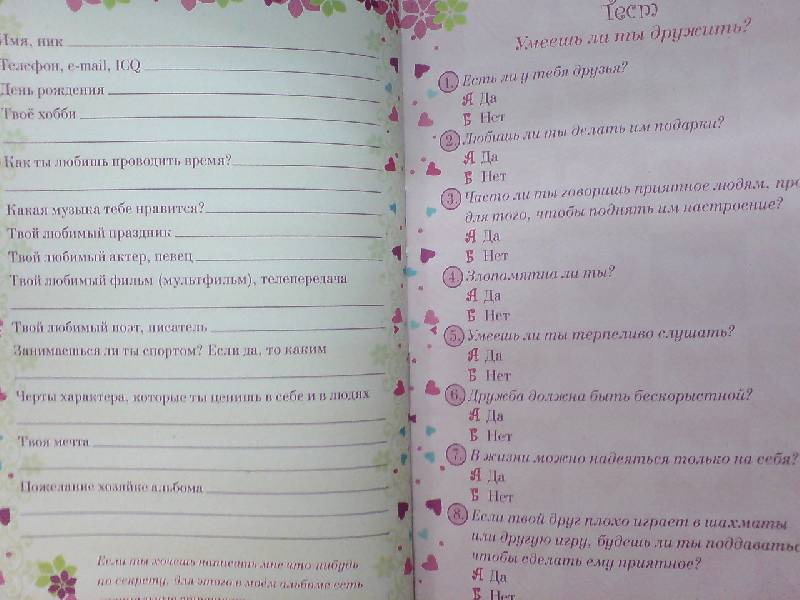 Имя, ник
Телефон, e-mail, ICQ
День рождения
Твоё хобби
Как ты любишь проводить время?
Какая музыка тебе нравится?
Твой любимый праздник
Твой любимый актер, певец
Твой любимый фильм (мультфильм), телепередача
Твой любимый поэт, писатель
Занимаешься ли ты спортом? Если да, то каким
Черты характера, которые ты ценишь в себе и в людях
Твоя мечта
Пожелание хозяйке альбома
Если ты хочешь написать мне что-нибудь
по секрету, для этого в моём альбоме есть
Тест
Умеешь ли ты дружить?
1. Есть ли у тебя друзья?
А Да
Б Нет
2. Любишь ли ты делать им подарки?
А Да
Б Нет
3. Часто ли ты говоришь приятное людям, про
для того, чтобы поднять им настроение?
А Да
Б Нет
4. Злопамятна ли ты?
А Да
Б Нет
5. Умеешь ли ты терпеливо слушать?
А Да
Б Нет
6. Дружба должна быть бескорыстной?
А Да
Б Нет
7. В жизни можно надеяться только на себя?
А Да
Б Нет
8. Если твой друг плохо играет в шахматы
или другую игру, будешь ли ты поддаватьс
чтобы сделать ему приятное?
А Да
Б Нет